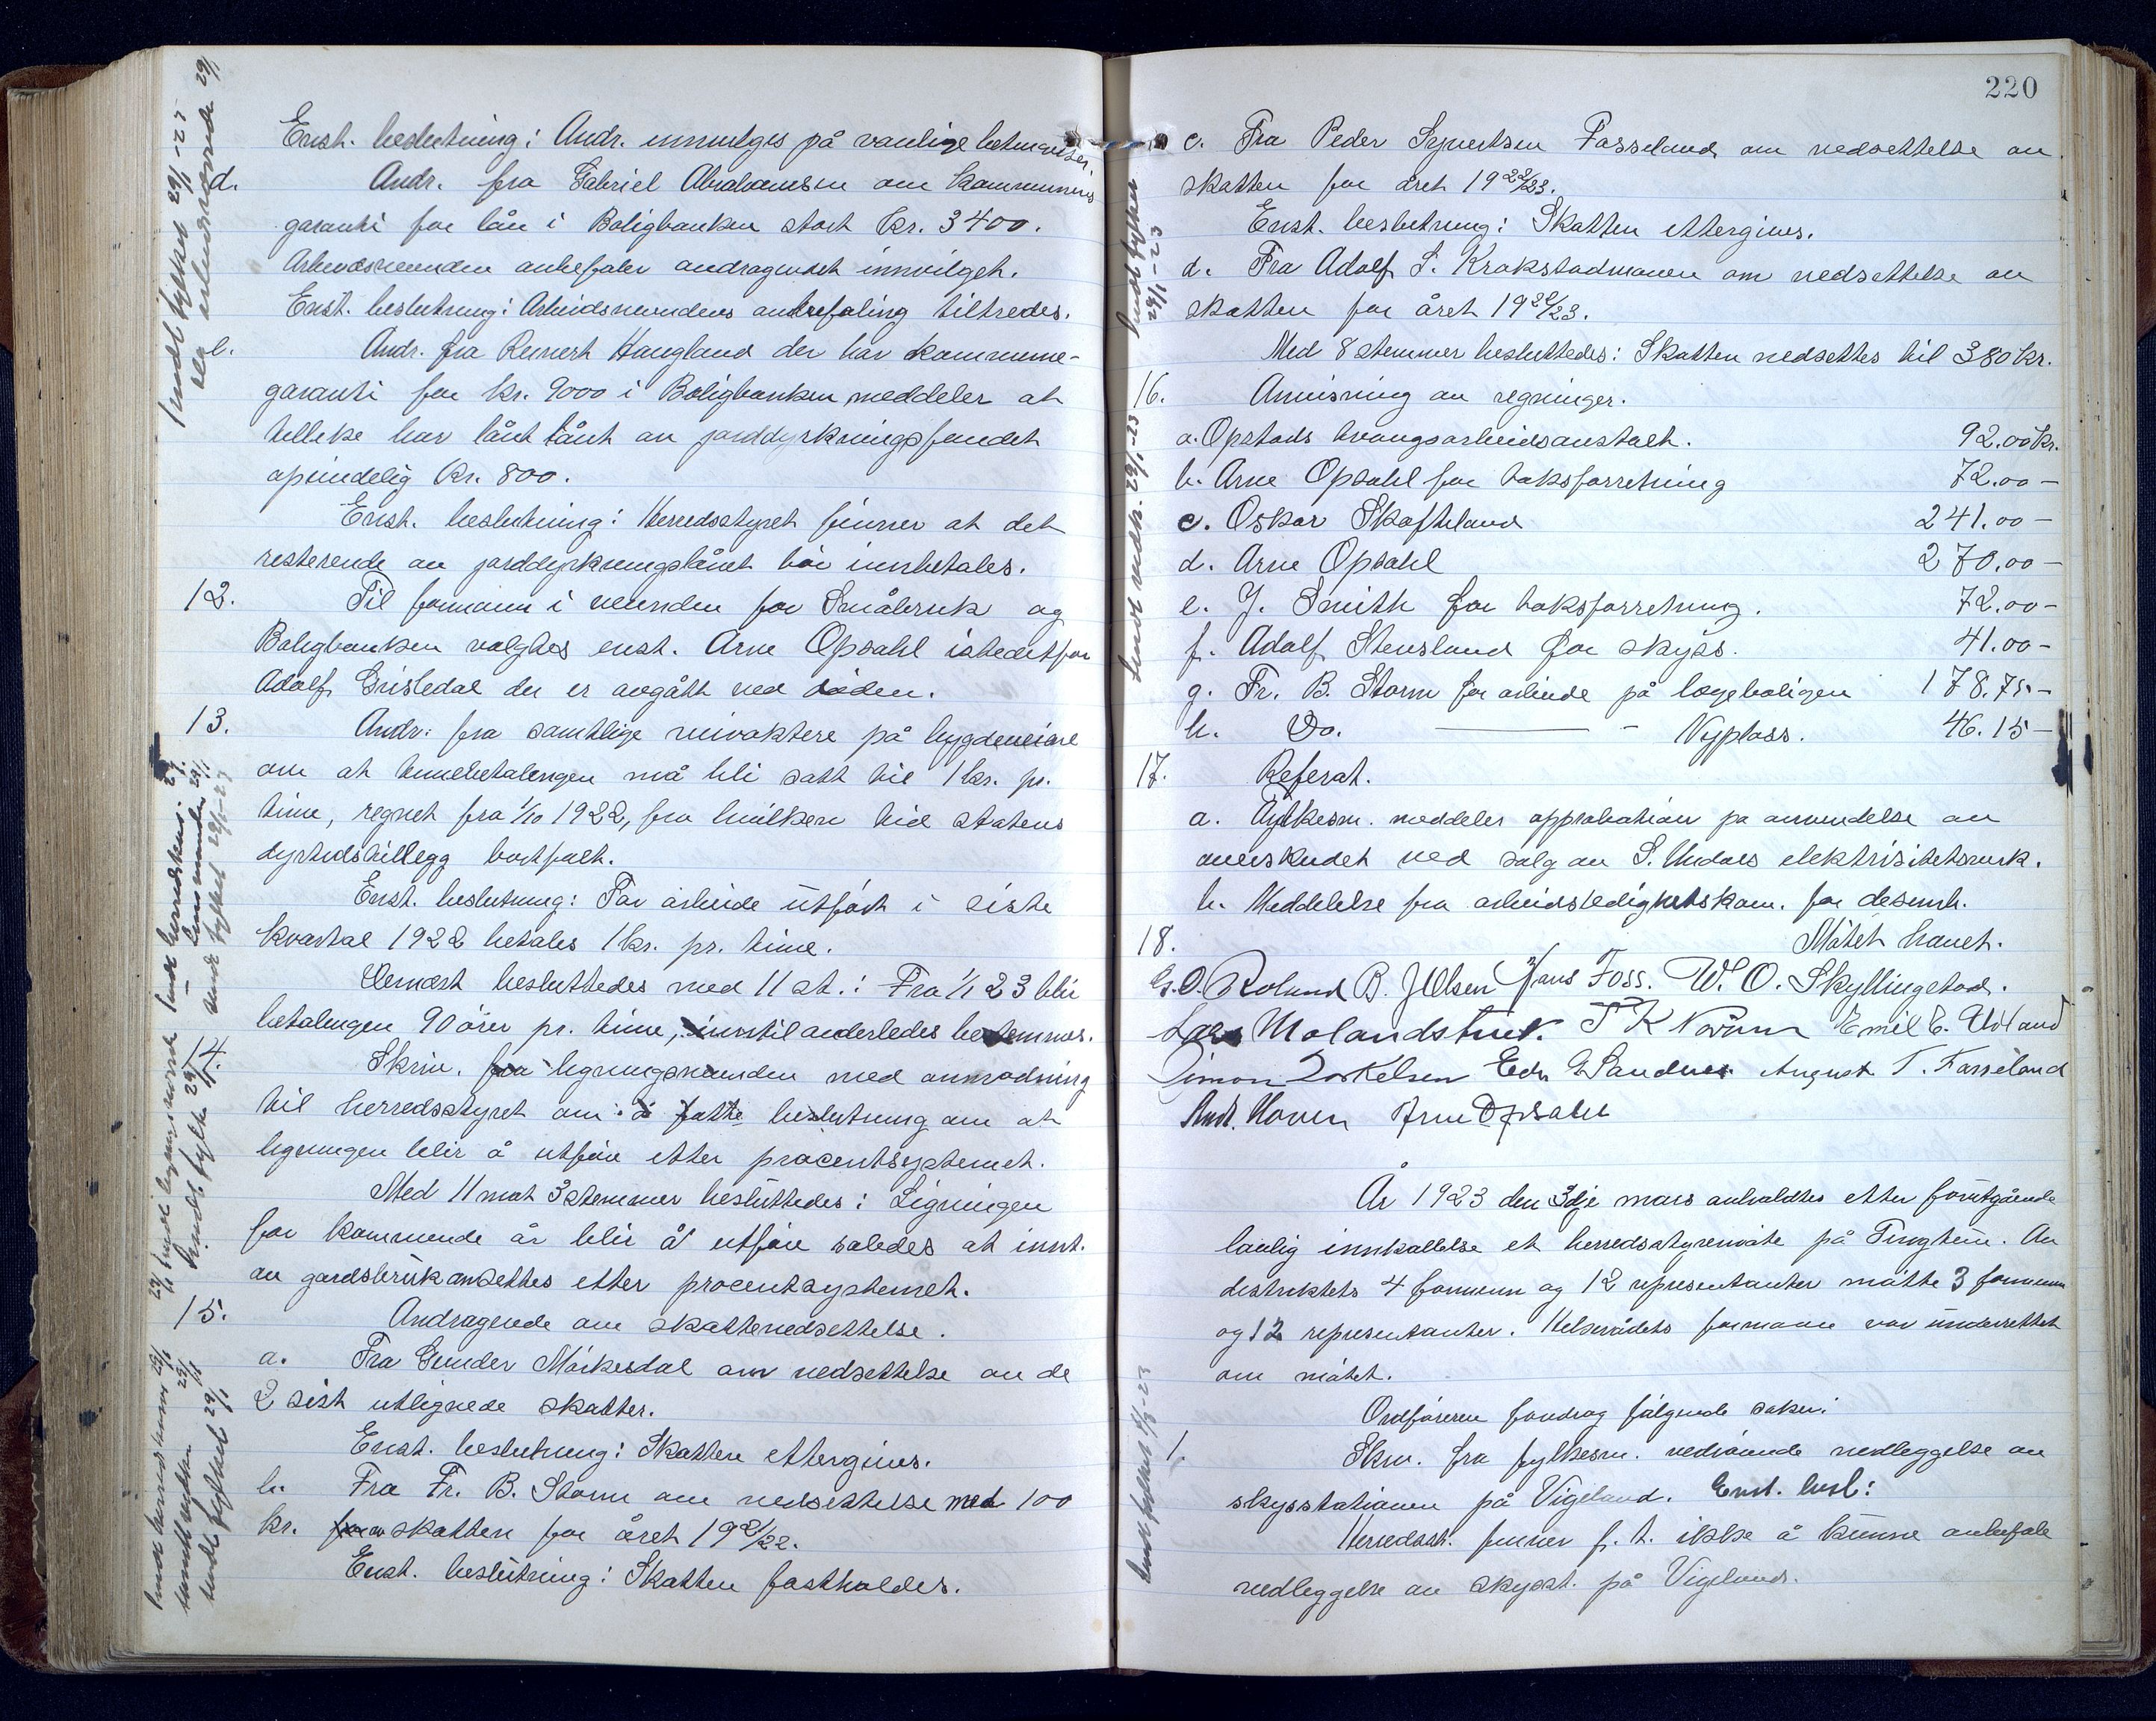 Enst. beslutning: Andr. innvilges på vanlige betingelser.
d. Andr. fra Gabriel Abrahamsen om kommunens
garanti for lån i Boligbanken stort kr. 3400.
Arbeidsnevnden anbefaler andragendet innvilget.
Enst. beslutning: Arbeidsnevndens anbefaling tiltredes.
e. Andr. fra Reinert Haugland der har kommune-
garanti for kr. 9000 i Boligbanken meddeler at
tillike har lånt lånt av jorddyrkningsfondet
oprindelig kr. 800.
Enst. beslutning: Herredsstyret finner at det
resterende av jorddyrkningslånet bør innbetales.
12. Til formann i nevnden for Småbruk og
Boligbanken valgtes enst. Arne Opsahl istedetfor
Adolf Grisledal der er avgått ved døden.
13. Andr. fra samtlige veivoktere på bygdeveiene
om at timebetalingen må bli satt til 1 kr. pr.
time, regnet fra 1/10 1922, fra hvilken tid statens
dyrtidstillegg bortfalt.
Enst. beslutning: For arbeide utført i siste
kvartal 1922 betales 1 kr. pr. time.
Dernæst besluttedes med 11 st.: Fra 1/1 23 blir
betalingen 90 ører pr. time, inntil anderledes bestemmes.
14. Skriv. fra ligningsnevnden med anmodning
til herredsstyret om å fatte beslutning om at
ligningen blir å utføre etter procentsystemet.
Med 11 mot 3 stemmer besluttedes: Ligningen
for kommende år blir å utføre således at innt.
av gardsbruk ansettes etter procentsystemet.
15. Andragende om skattenedsettelse.
a. Fra Gunder Mørkesdal om nedsettelse av de
2 sist utlignede skatter.
Enst. beslutning: Skatten ettergives.
b. Fra Fr. B. Storm om nedsettelse med 100
kr. skatten for året 1921/22.
Enst. beslutning: Skatten fastholdes.
220
c. Fra Peder Syvertsen Fasseland om nedsettelse av
skatten for året 1922/23.
Enst. beslutning: Skatten ettergives.
d. Fra Adolf S. Krokstadmoen om nedsettelse av
skatten for året 1922/23.
Med 8 stemmer besluttedes: Skatten nedsettes til 380 kr.
16. Anvisning av regninger.
a. Opstads tvangsarbeidsanstalt. 92.00 kr.
b. Arne Opsahl for taksforretning 72.00 -
c. Oskar Skofteland 241.00 -
d. Arne Opsahl 270.00 -
e. J. Smith for taksforretning. 72.00 -
f. Adolf Stensland for skyss. 41.00 -
g. Fr. B. Storm for arbeide på lægeboligen 178.75 -
h. Do. - Nyplass. 46.15 -
17. Referat.
a. Fylkesm. meddeler approbation på anvendelse av
overskudet ved salg av S. Undals elektrisitetsverk.
b. Meddelelse fra arbeidsledighetskom. for desemb.
18. Møtet hevet.
G. O. Roland B. J Olsen Hans Foss. W. O. Skyllingstad.
Lars Molandstveit. T K Emil E. Udland
Simon Torkelsen Edv. G Sandnes August T. Fasseland
Andr. Hoven Arne Opsahl
År 1923 den 3dje mars avholdtes etter forutgående
lovlig innkallelse et herredsstyremøte på Tingheim. Av
distriktets 4 formenn og 12 representanter møtte 3 formenn
og 12 representanter. Helserådets formann var underrettet
om møtet.
Ordføreren foredrog følgende saker:
1. Skriv. fra fylkesm. vedrørende nedleggelse av
skysstationen på Vigeland. Enst. besl:
Herredsst. finner f. t. ikke å kunne anbefale
nedleggelse av skysst. på Vigeland.